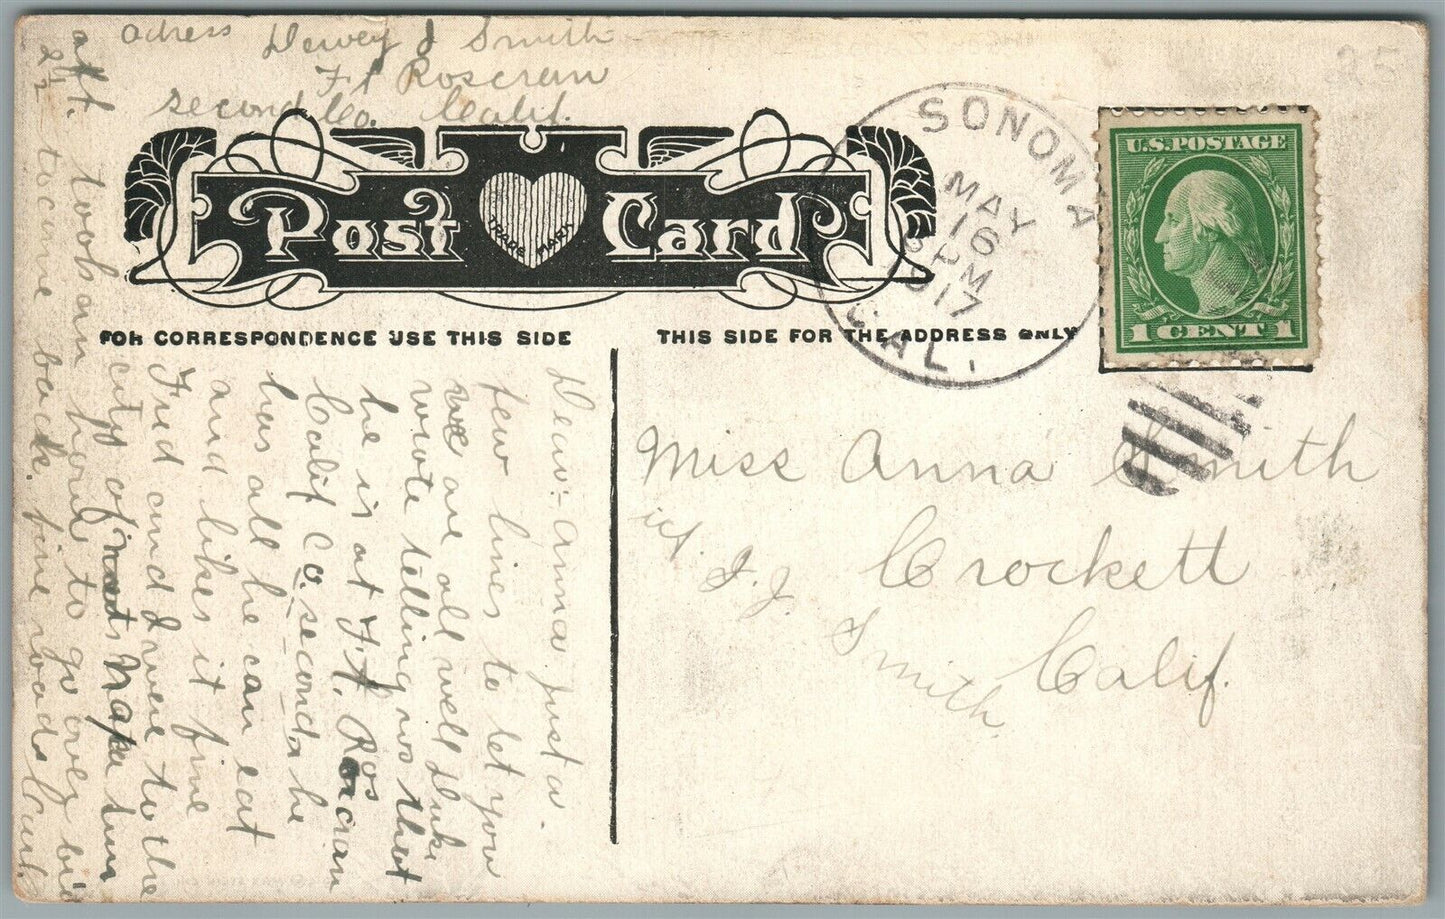 adress Dewey J Smith
Ft Roscran
second Co. Calif.
Post Card
TRADE MARK
FOR CORRESPONDENCE USE THIS SIDE
THIS SIDE FOR THE ADDRESS ONLY
SONOMA
MAY
16
PM
1917
CAL.
U.S. POSTAGE
1 CENT 1
25
Dear Anna Just a
few lines to let you
we are all well Duke
wrote telling us that
he is at Ft. Roscran
Calif Co. second he
has all he can eat
and likes it fine
Fred and I were to the
city of Napa Sun
aft. took an hour to go over by
2 1/2 to come back. fine roads
Miss Anna Smith
Crockett
Calif.
J. J.
Smith